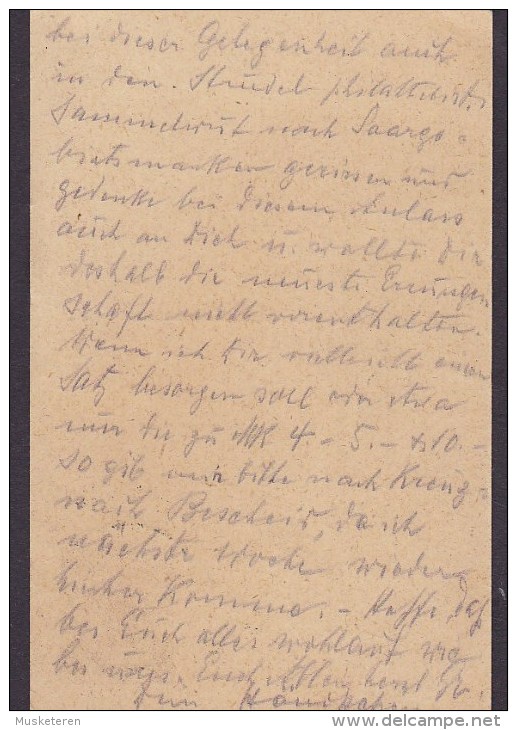 bei dieser Gelegenheit auch
in den Strudel philatelist.
Sammelwut nach Saarge-
bietsmarken gerissen und
gedenke bei diesem Anlass
auch an Dich u. wollte Dir
deshalb die neueste Errungen
schaft nicht vorenthalten.
Wenn ich Dir vielleicht einen
Satz besorgen soll oder etwa
nur die zu Mk 4.- 5.- & 10.-
so gib mir bitte nach Kreuz-
nach Bescheid, da ich
nächste Woche wieder
hinkomme. - Hoffe, daß
bei Euch alles wohlauf wie
bei uns. Euch Allen herzl. Gr.
Dein
Musketeren
delcampe.net